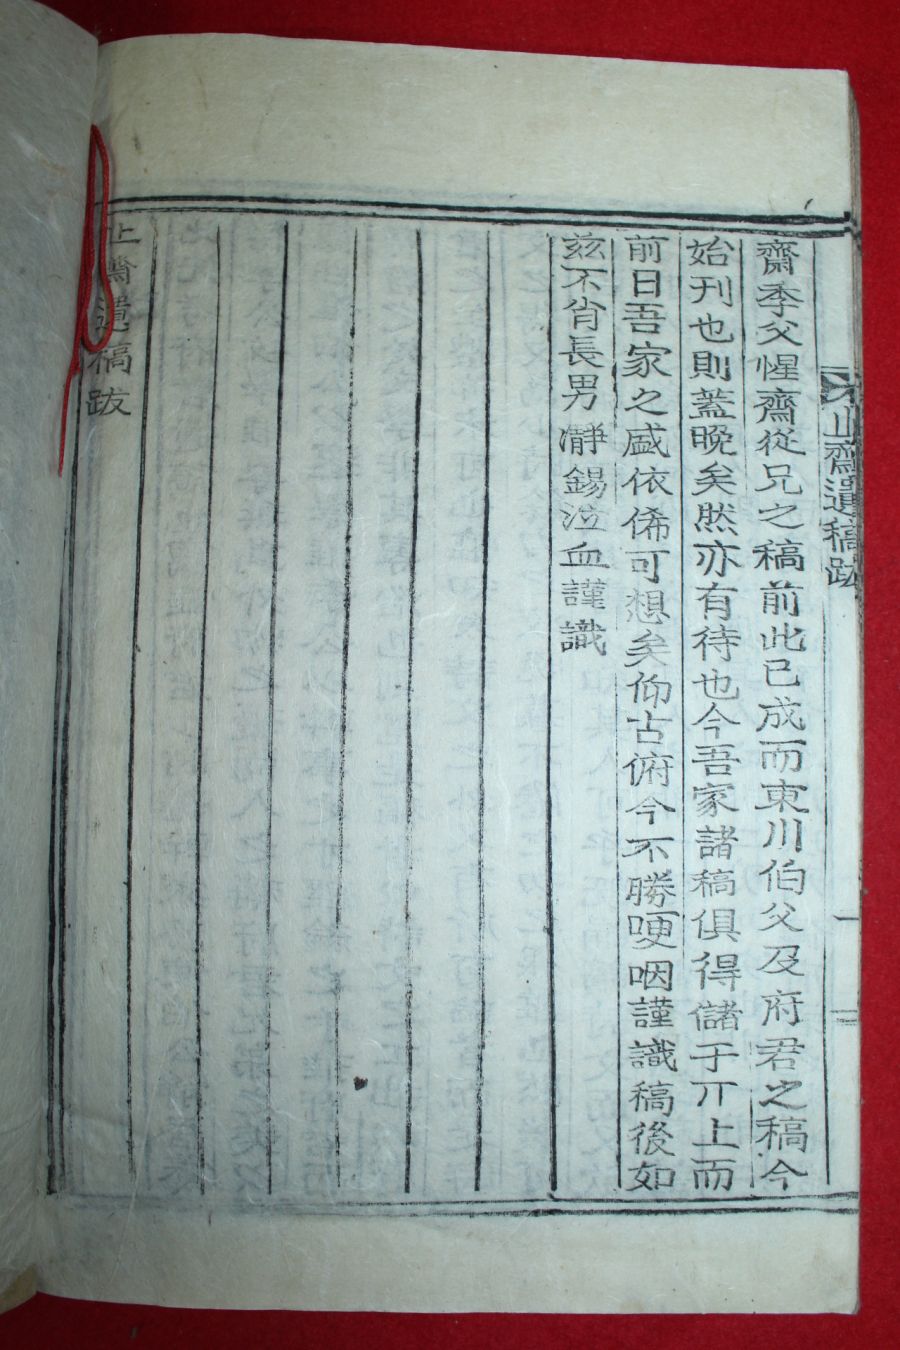 山齋遺稿跋
一
齋季父惺齋從兄之稿前此已成而東川伯父及府君之稿今
始刊也則蓋晩矣然亦有待也今吾家諸稿俱得儲于丌上而
前日吾家之盛依俙可想矣仰古俯今不勝哽咽謹識稿後如
玆不肖長男瀞錫泣血謹識
山齋遺稿跋